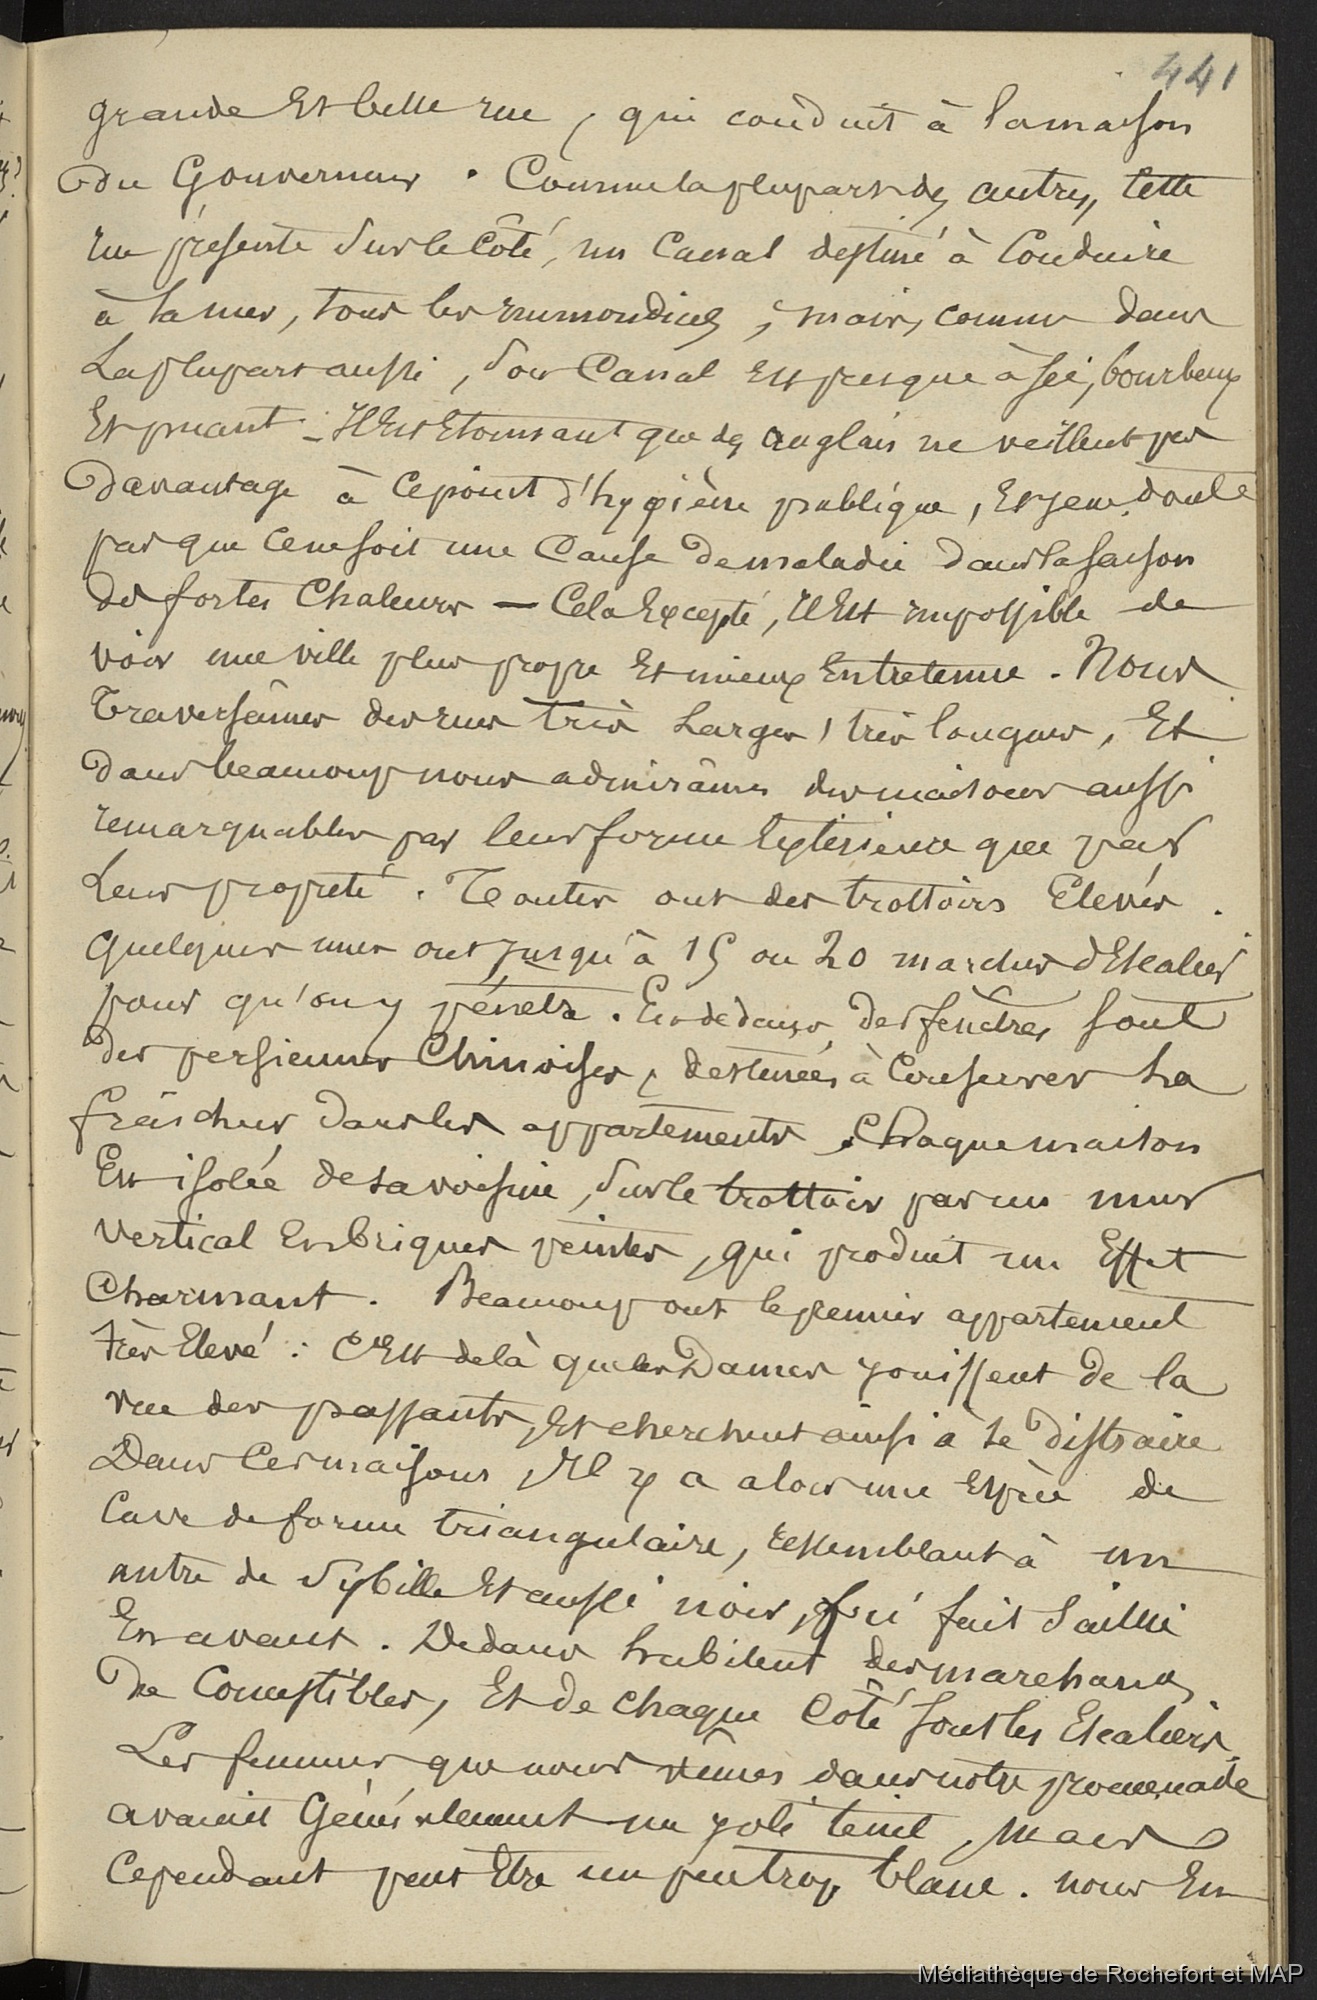 441
grande Et belle rue, qui conduit à la maison
du Gouverneur. Comme la plupart des autres, Cette
rue présente sur le Côté, un Canal destiné à Conduire
à la mer, tous les immondices ; mais, comme dans
La plupart aussi, son Canal Est presque à sec, bourbeux
Et puant - Il Est Etonnant que des anglais ne veillent pas
Davantage à Ce point d'hygiène publique, Et je ne doute
pas que Ce ne soit une Cause De maladie Dans la saison
des fortes Chaleurs — Cela Excepté, il Est impossible de
voir une ville plus propre Et mieux Entretenue. Nous
Traversâmes des rues très Larges, très longues, Et
dans beaucoup nous admirâmes des maisons aussi
remarquables par leur forme Extérieure que par
Leur propreté. Toutes ont des trottoirs Elevés.
Quelques unes ont jusqu'à 15 ou 20 marches d'Escalier
pour qu'on y pénètre. En dedans des fenêtres sont
des persiennes Chinoises, destinées à Conserver La
fraîcheur dans les appartements. Chaque maison
Est isolée de sa voisine, sur le trottoir par un mur
vertical En briques peintes, qui produit un Effet
Charmant. Beaucoup ont le premier appartement
très Elevé : C'Est de là que les Dames jouissent de la
vue des passants, Et cherchent ainsi à se distraire
Dans Ces maisons, Il y a alors une Espèce de
Cave de forme triangulaire, ressemblant à un
antre de Sybille Et aussi noir, qui fait Saillie
En avant. Dedans habitent des marchands
De Comestibles, Et de chaque Côté sont les Escaliers.
Les femmes que nous vîmes dans notre promenade
avaient Généralement un joli teint, mais
Cependant peut Etre un peu trop blanc. nous En
Médiathèque de Rochefort et MAP